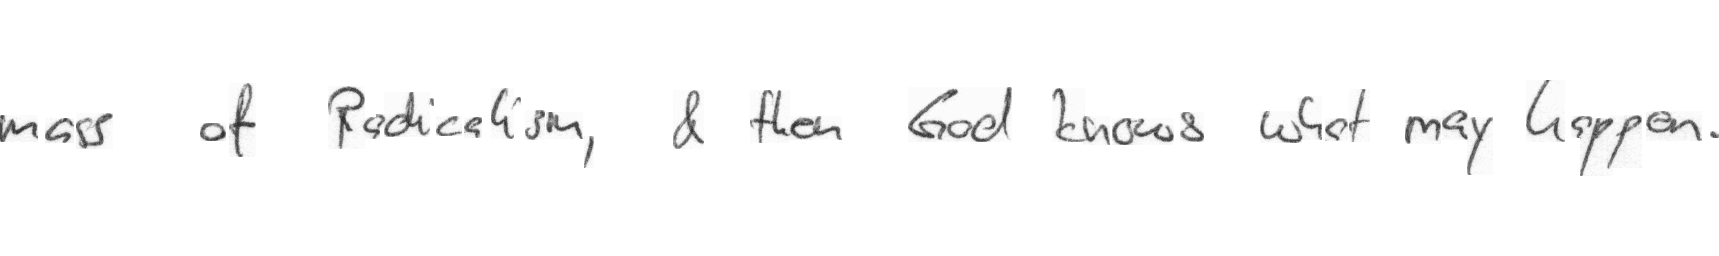 mass of Radicalism, & then God knows what may happen.